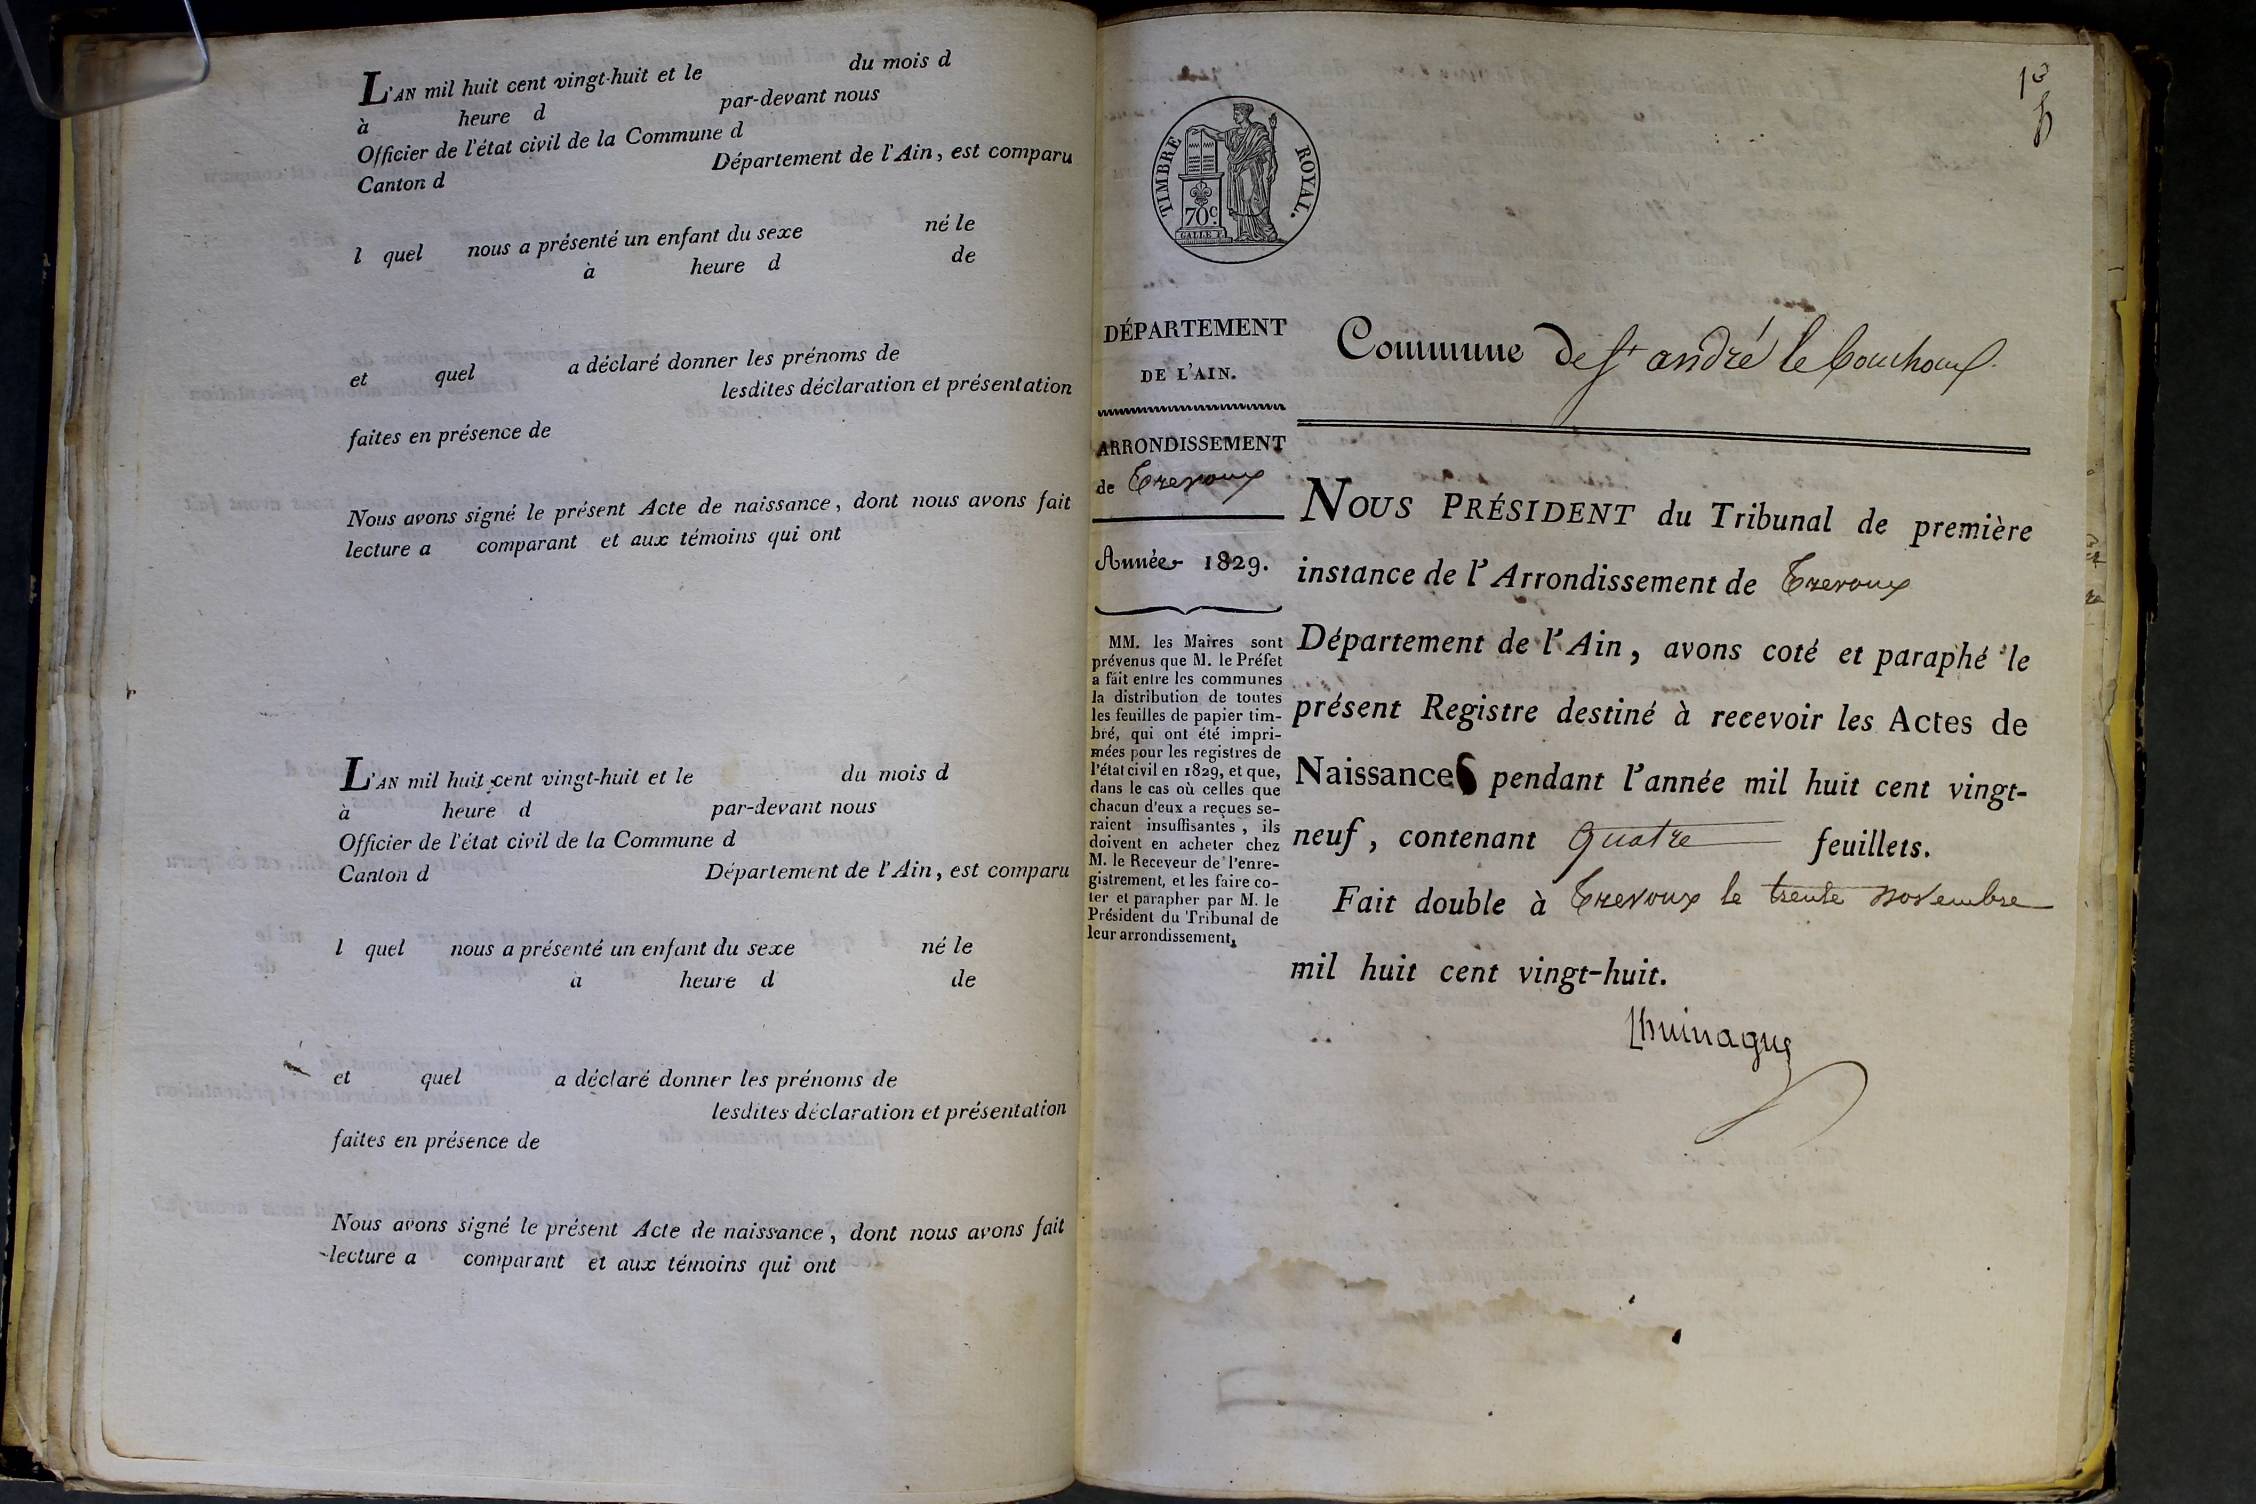 L'AN mil huit cent vingt-huit et le du mois d
à heure d par-devant nous
Officier de l'état civil de la Commune d
Canton d Département de l'Ain, est comparu
l quel nous a présenté un enfant du sexe né le
à heure d de
et quel a déclaré donner les prénoms de
lesdites déclaration et présentation
faites en présence de
Nous avons signé le présent Acte de naissance, dont nous avons fait
lecture a comparant et aux témoins qui ont
L'AN mil huit cent vingt-huit et le du mois d
à heure d par-devant nous
Officier de l'état civil de la Commune d
Canton d Département de l'Ain, est comparu
l quel nous a présenté un enfant du sexe né le
à heure d de
et quel a déclaré donner les prénoms de
lesdites déclaration et présentation
faites en présence de
Nous avons signé le présent Acte de naissance, dont nous avons fait
lecture a comparant et aux témoins qui ont
TIMBRE ROYAL.
70 c.
GALLE F.
DÉPARTEMENT
DE L'AIN.
ARRONDISSEMENT
de Trevoux
Année 1829.
MM. les Maires sont
prévenus que M. le Préfet
a fait entre les communes
la distribution de toutes
les feuilles de papier tim-
bré, qui ont été impri-
mées pour les registres de
l'état civil en 1829, et que,
dans le cas où celles que
chacun d'eux a reçues se-
raient insuffisantes, ils
doivent en acheter chez
M. le Receveur de l'enre-
gistrement, et les faire co-
ter et parapher par M. le
Président du Tribunal de
leur arrondissement.
Commune de St andré le bouchoux
NOUS PRÉSIDENT du Tribunal de première
instance de l'Arrondissement de Trevoux
Département de l'Ain, avons coté et paraphé le
présent Registre destiné à recevoir les Actes de
Naissances pendant l'année mil huit cent vingt-
neuf, contenant quatre feuillets.
Fait double à Trevoux le trente novembre
mil huit cent vingt-huit.